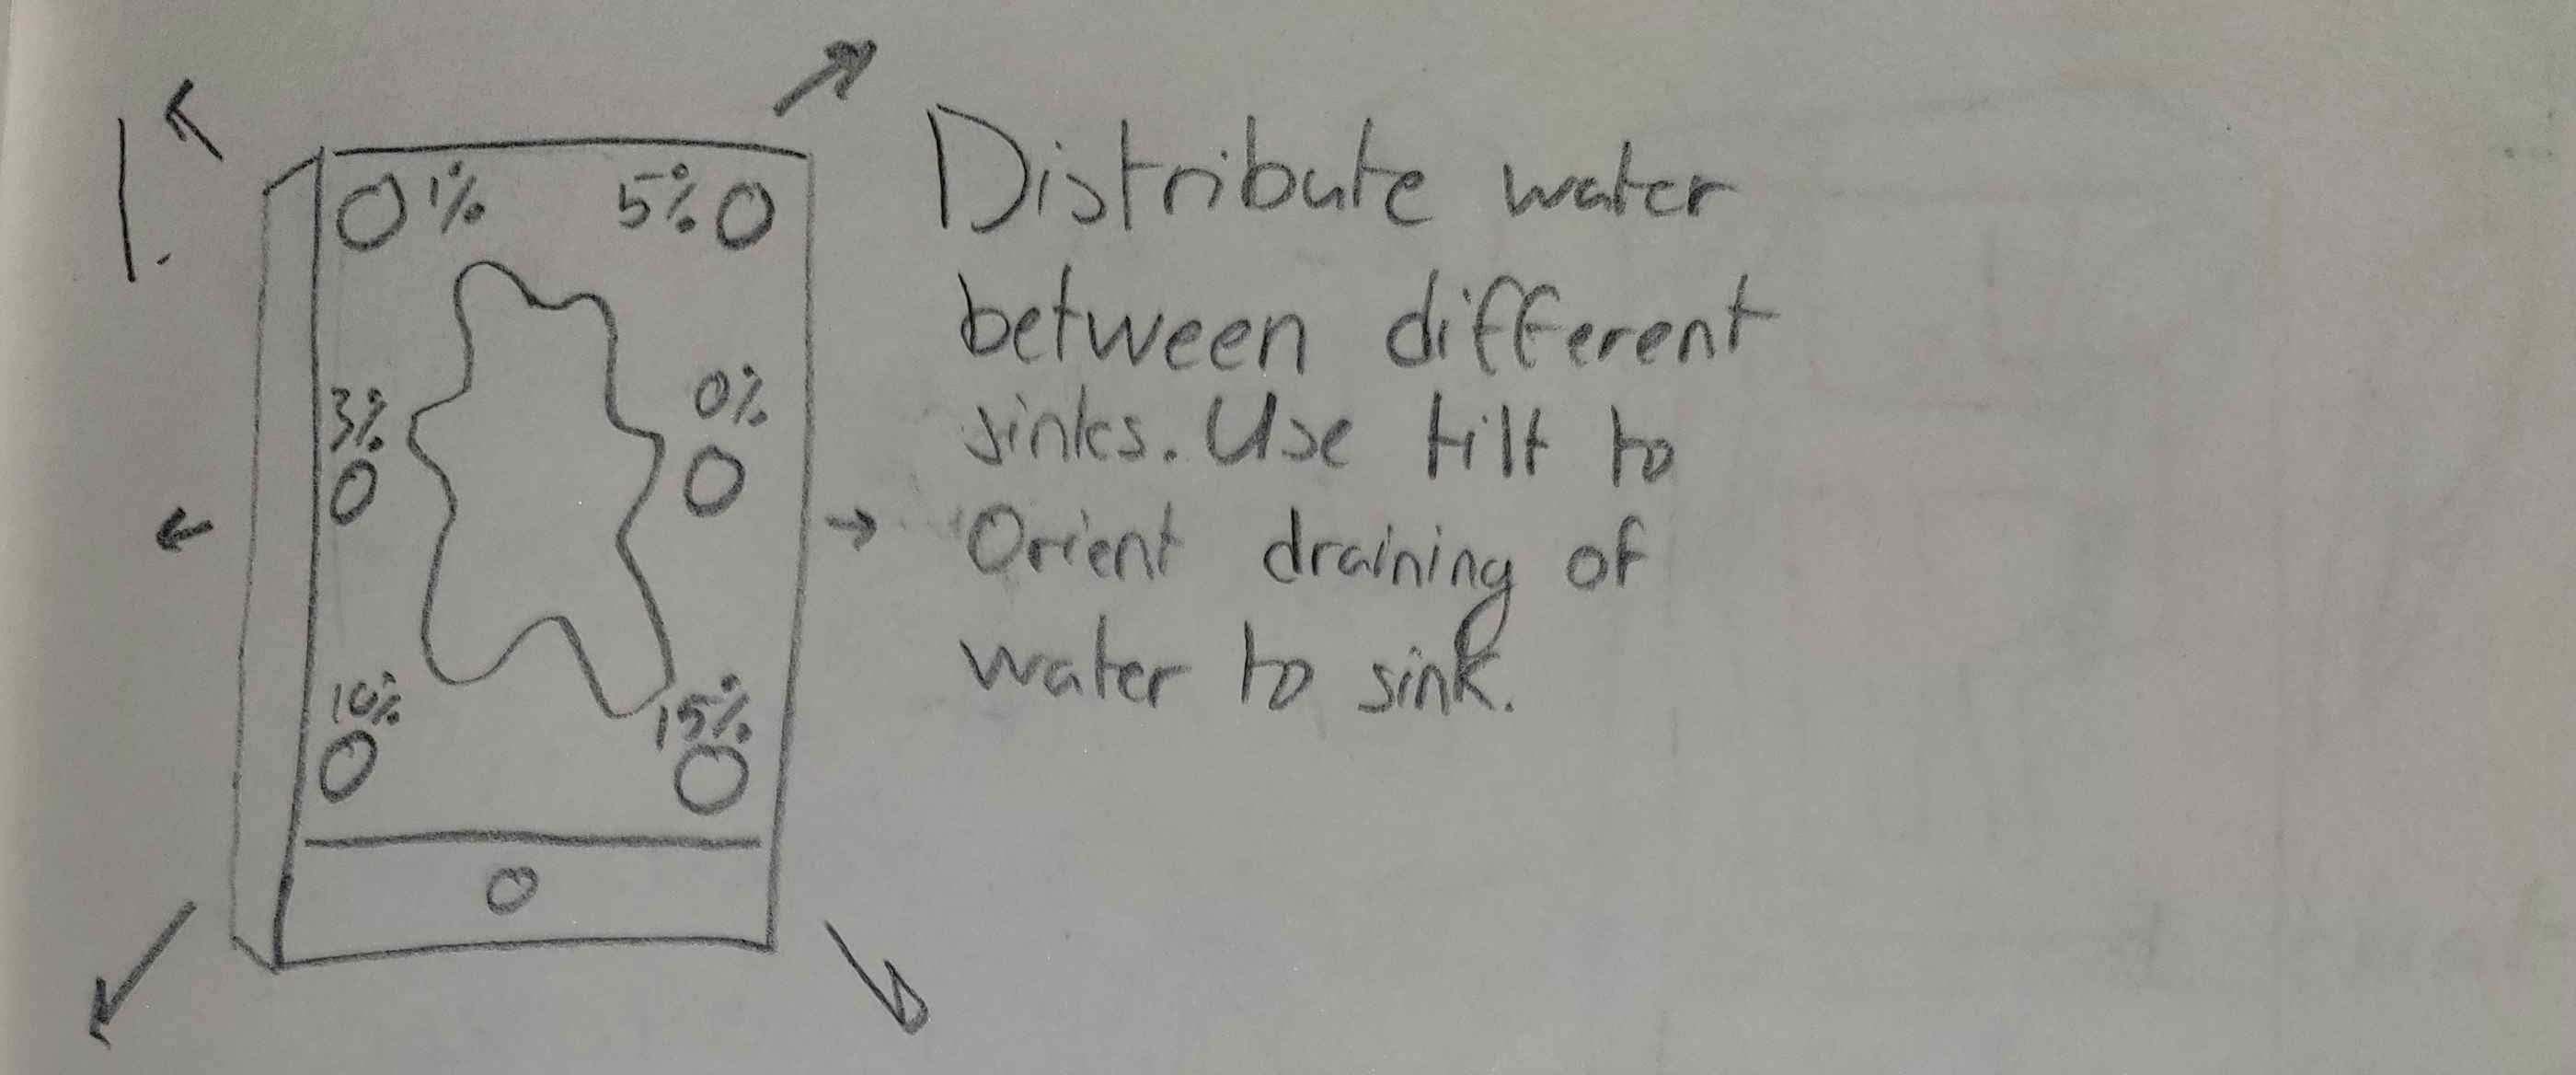 1.
1% 5%
3% 0%
10% 15%
Distribute water
between different
sinks. Use tilt to
Orient draining of
water to sink.